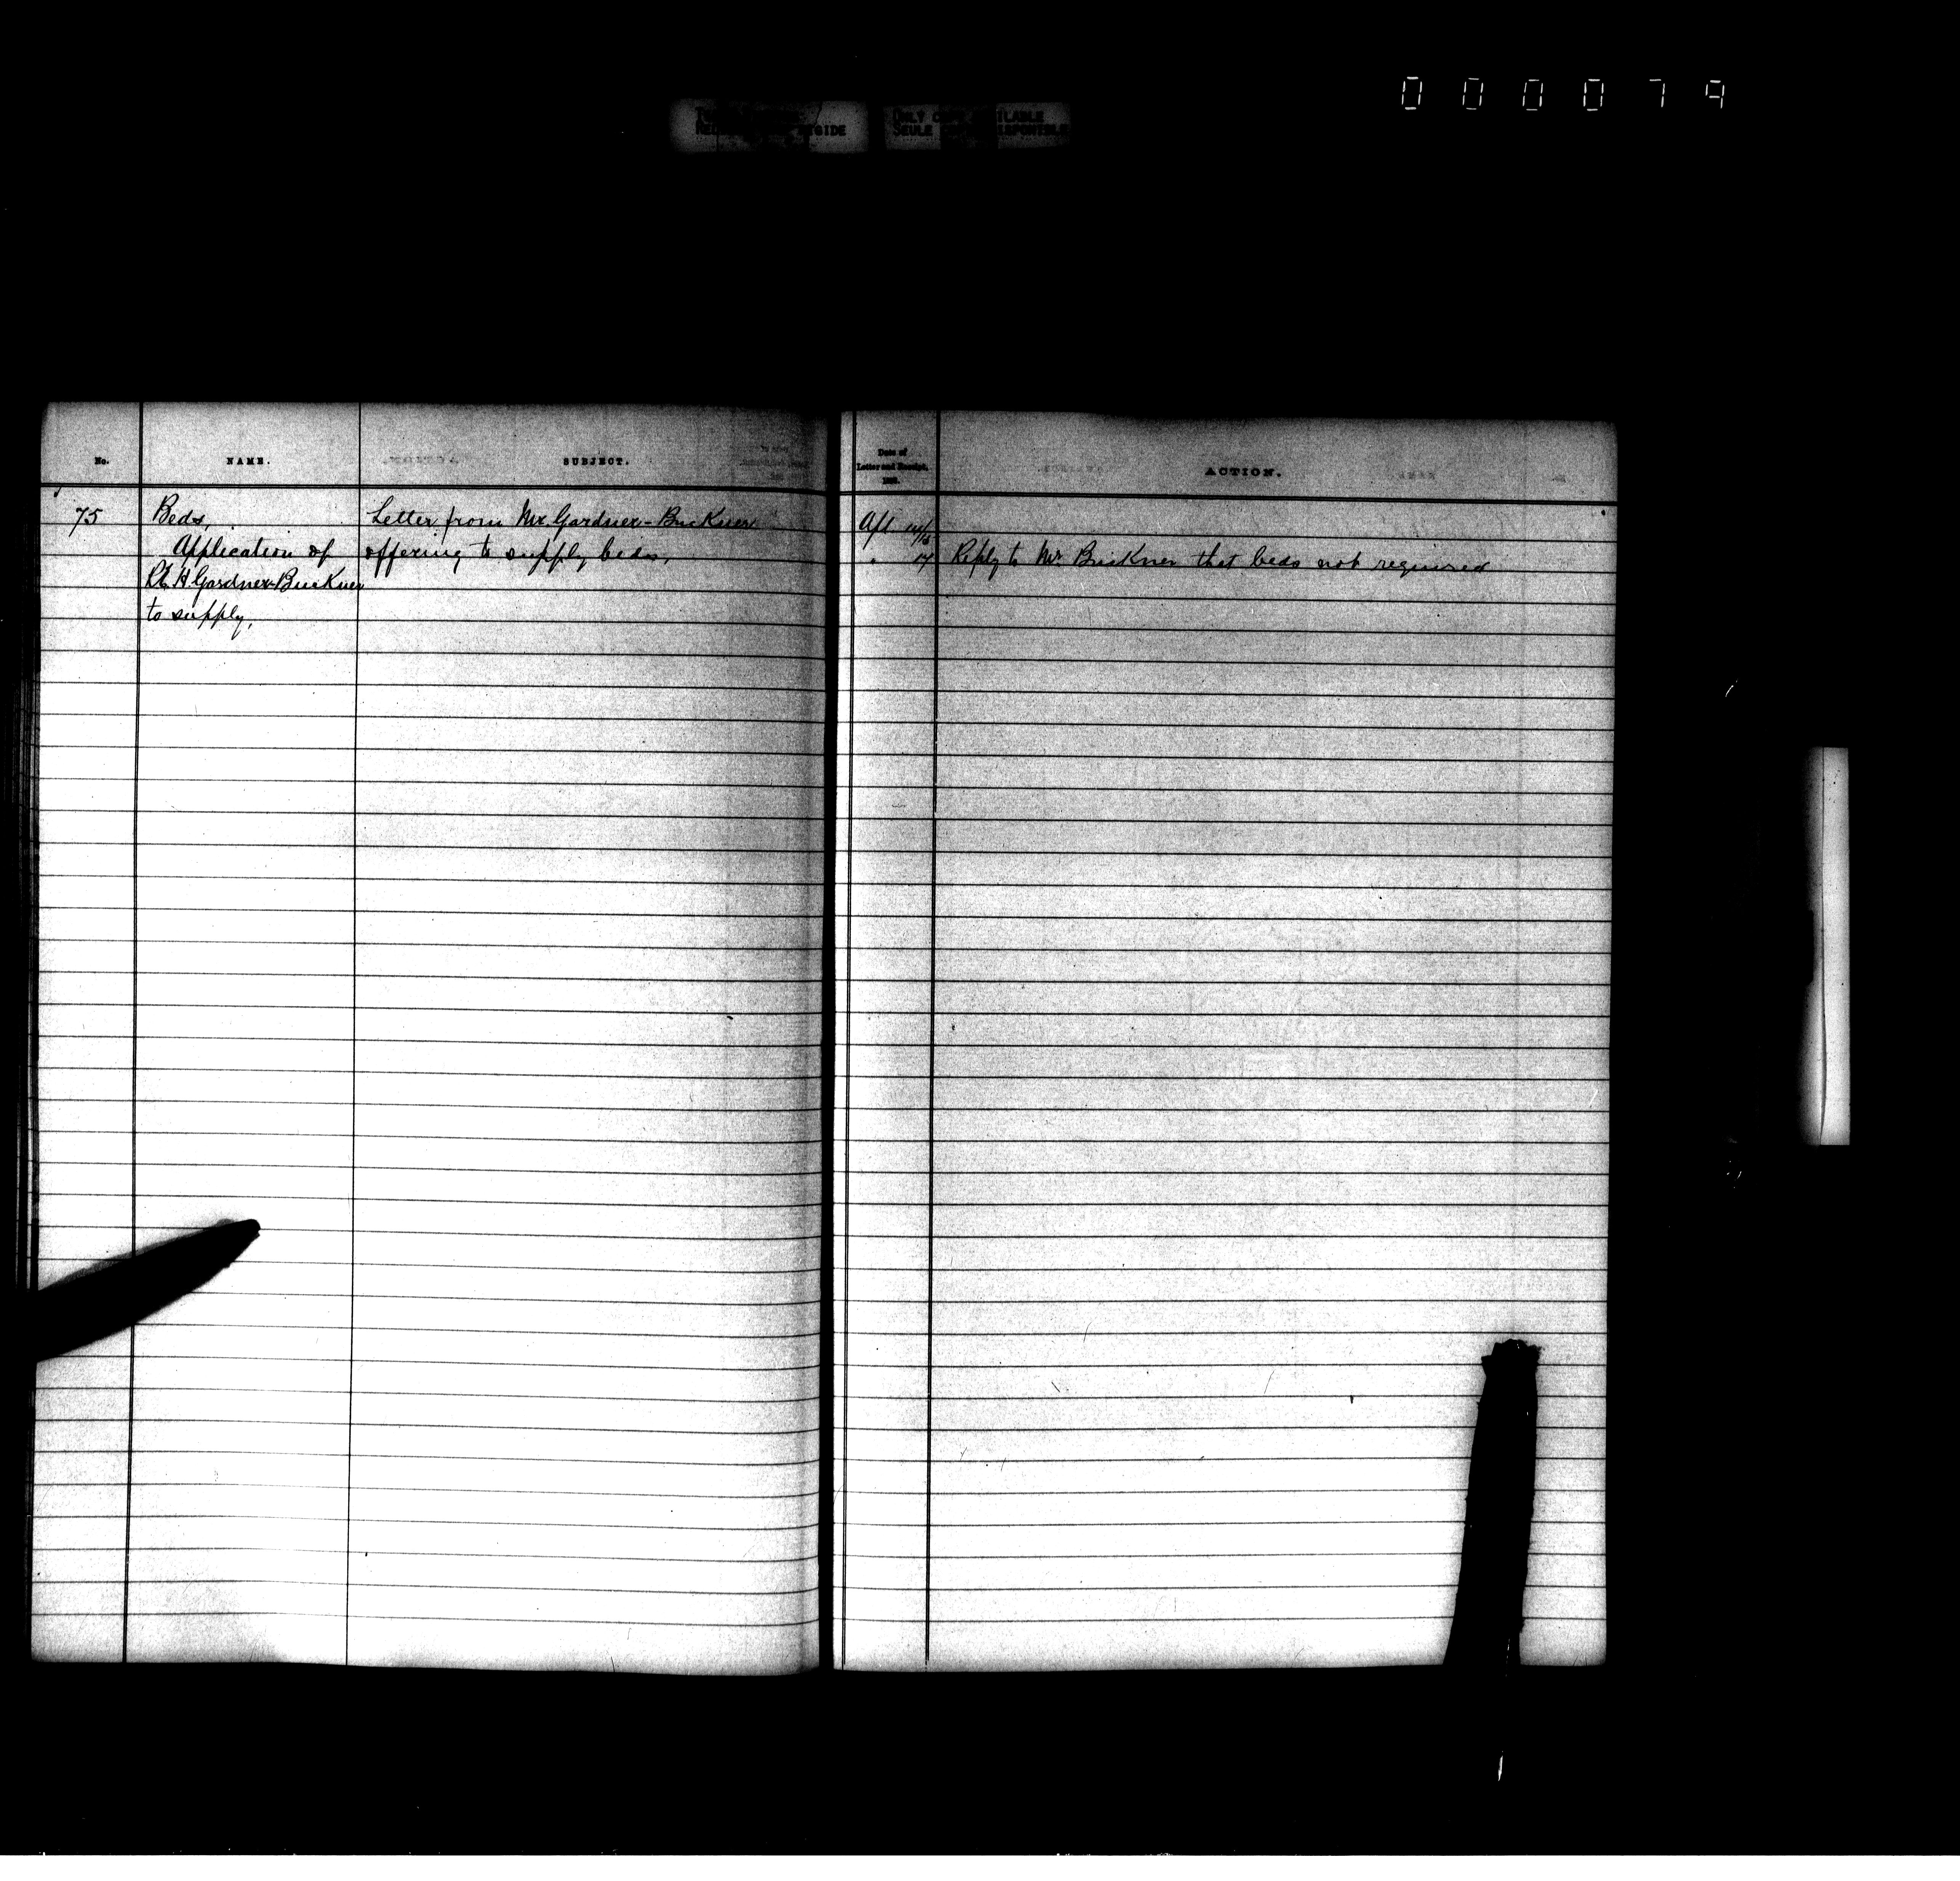 000079
ONLY COPY AVAILABLE
No.
NAME.
SUBJECT.
Date of
Letter and Receipt,
ACTION.
75
Beds,
Application of
H Gardner-Buckner
to supply,
Letter from Mr. Gardner-Buckner
offering to supply beds,
" 17 Reply to Mr. Buckner that beds not required